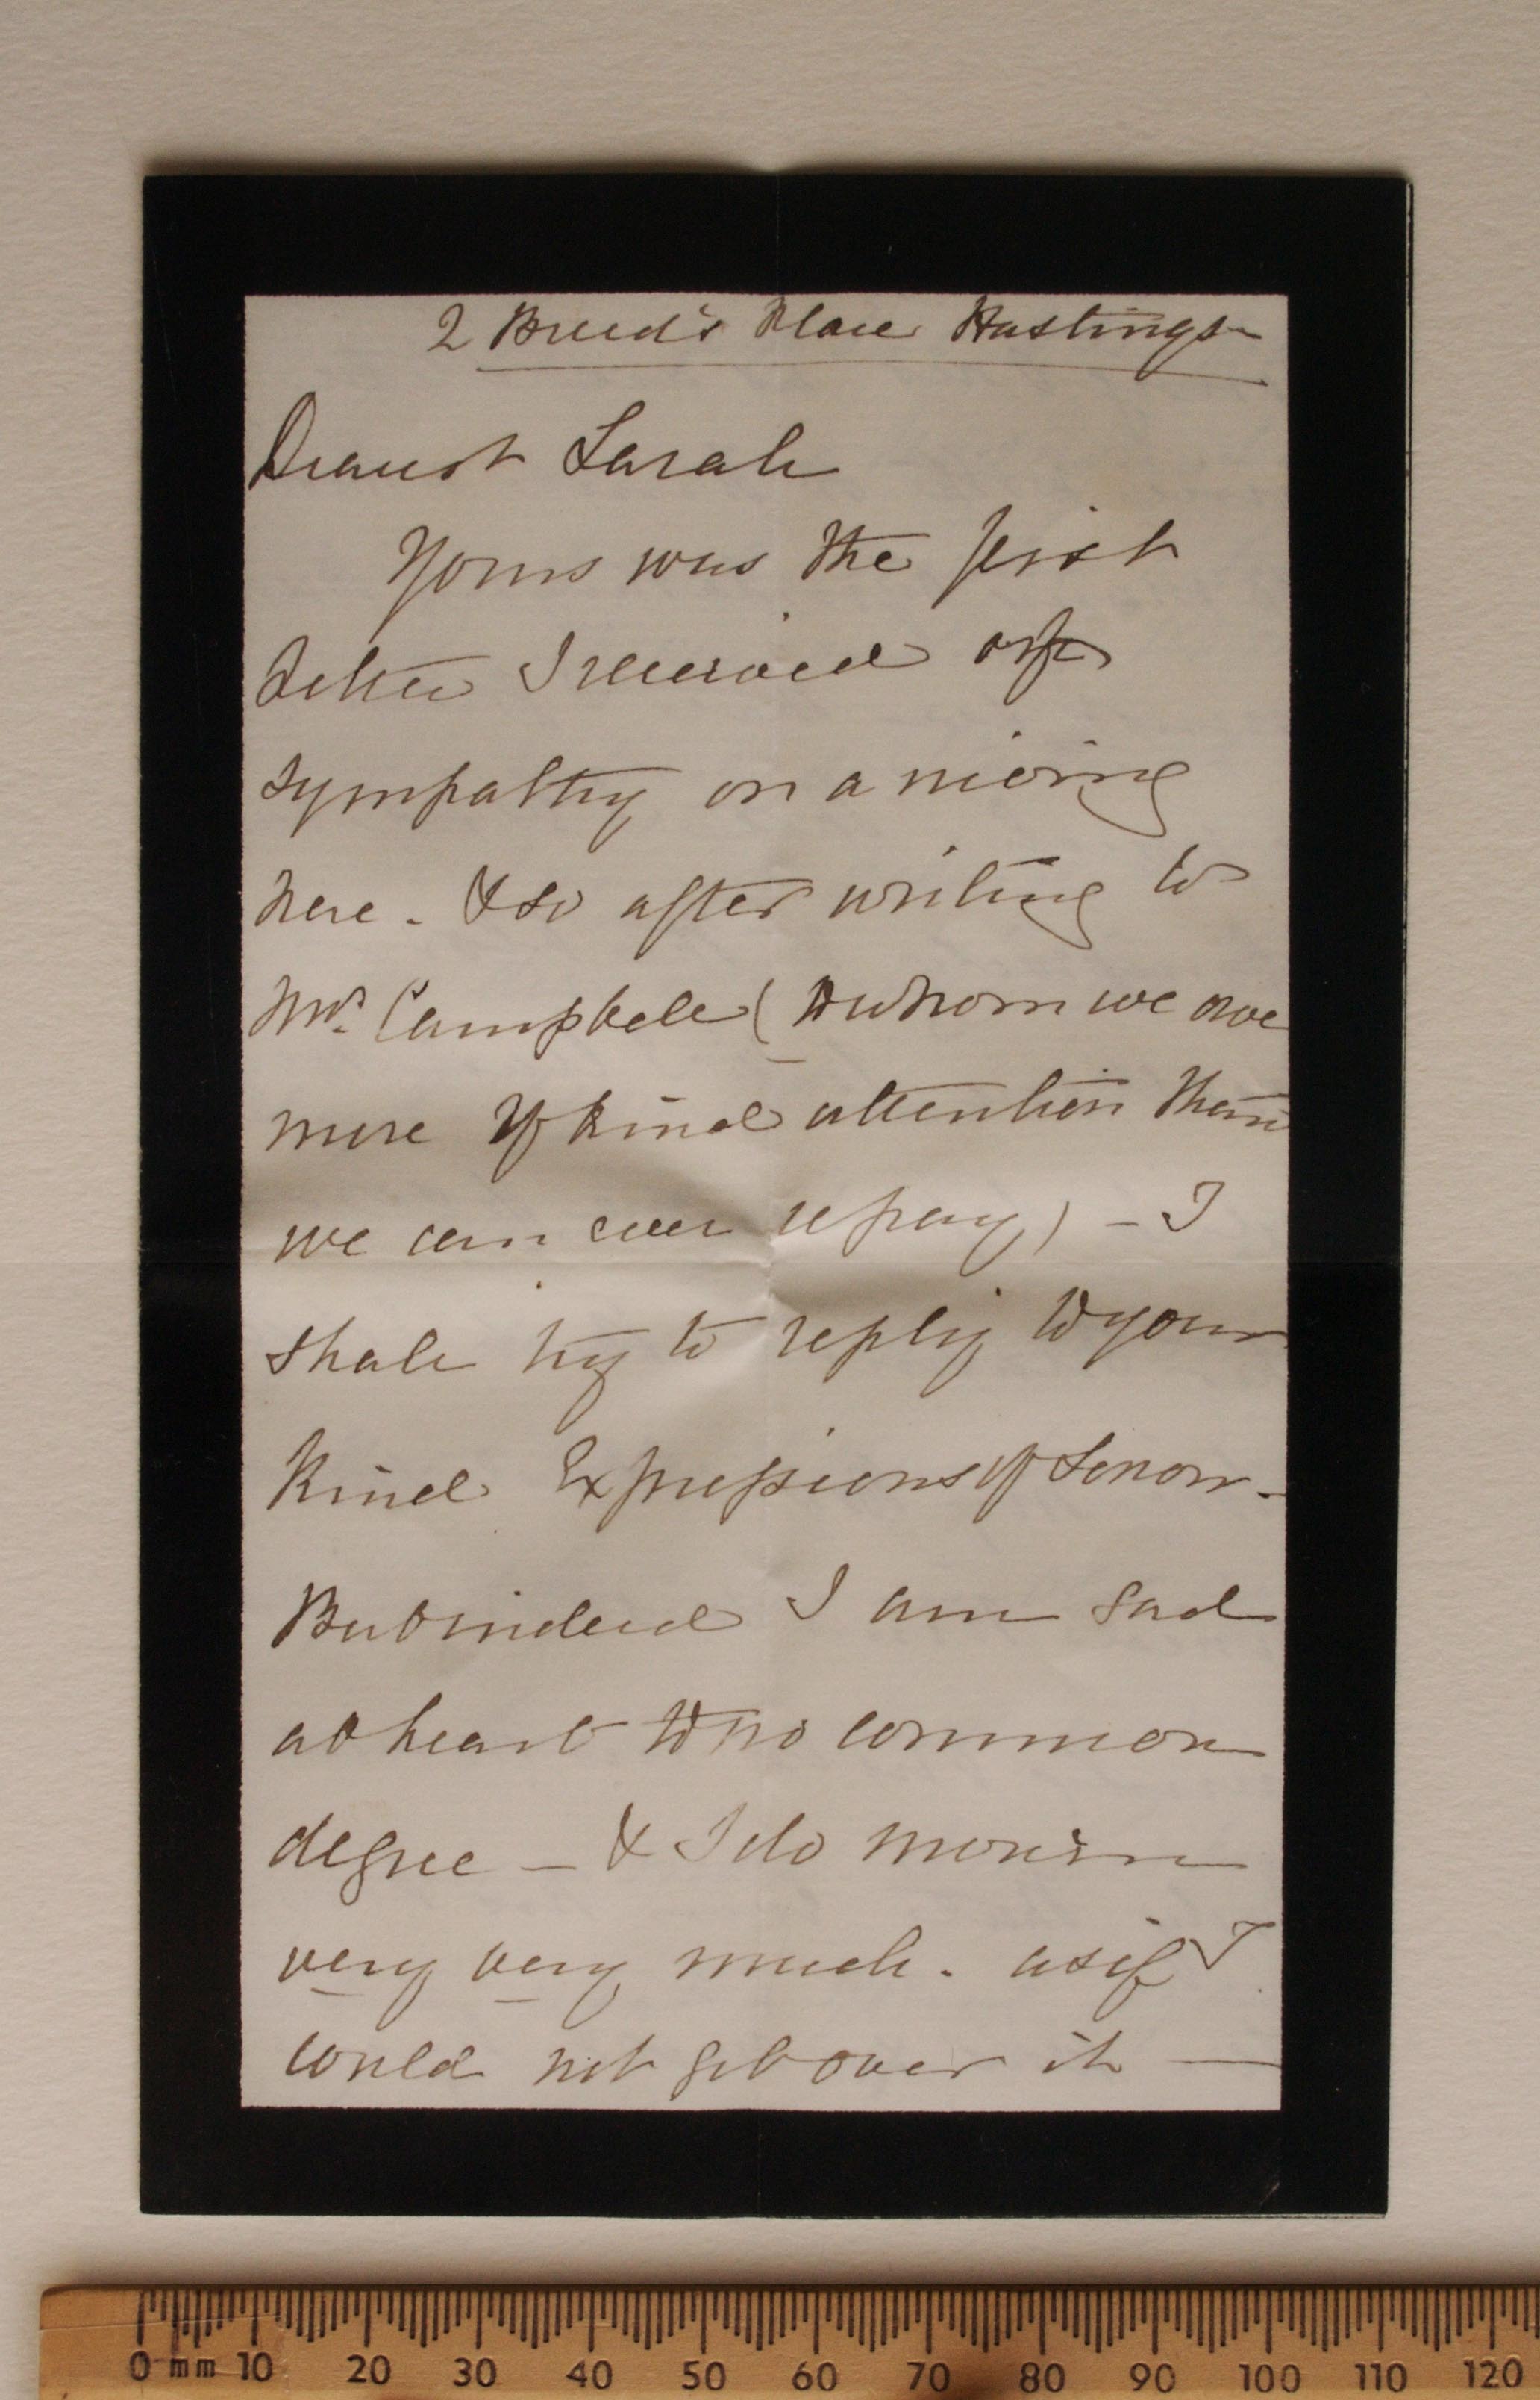 2 Breed's Place Hastings
Dearest Sarah
Yours was the first
Letter I received of
sympathy on arriving
here. & so after writing to
Mrs. Campbell (to whom we owe
more of kind attention than
we can ever repay) - I
shall try to reply to your
kind Expressions of Sorrow.
But indeed I am sad
at heart to no common
degree - & I do mourn
very very much. as if I
could not get over it —
0 mm 10 20 30 40 50 60 70 80 90 100 110 120